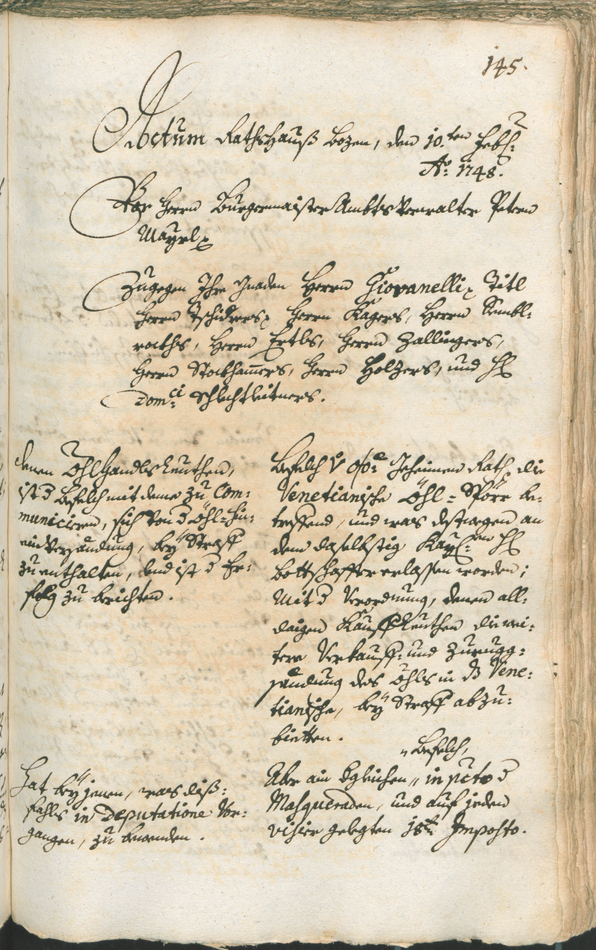 145.
Actum Rathshauß Bozen, den 10.ten Feb:
Ao: 1748.
Vor Herrn Burgermaister Ambts Verwalter Petern
Mayrl
Zugegen Ihro Gnaden Herrn Giovanelli Titl
Herrn Tschiderers Herrn Kagers, Herrn Rembl:
raiths, Herrn Ertls, Herrn Zallingers,
Herrn Stockhamers, Herrn Holzers, und H:
Domci: Schlechtleitners.
denen Öhlhandls Leuthen,
ist d Befelch mit deme zu Com:
municiren, sich von d Öhl-hin:
ein Versändung, bey Straff
zu enthalten, und ist d Er:
folg zu berichten.
Befelch V Geheimen Rath, die
Venetianische Öhl-Spörr be:
treffend, und was destwegen an
dem daselbstig Kay: H
Bottschaffter erlassen worden;
Mit d Verordnung, denen all:
daigen Kauff Leuthen die wei:
tere Verkauff- und Zurugg:
sendung des Öhls in d Vene:
tianische, bey Straff abzu:
bietten.
Hat bey jenen, was diß:
fahls in Deputatione Vor:
gangen, zu bewenden.
„Befelch,
Über ain dgleichen „in pcto d
Masqueraden, und auf jeden
visier gelegten Imposto.